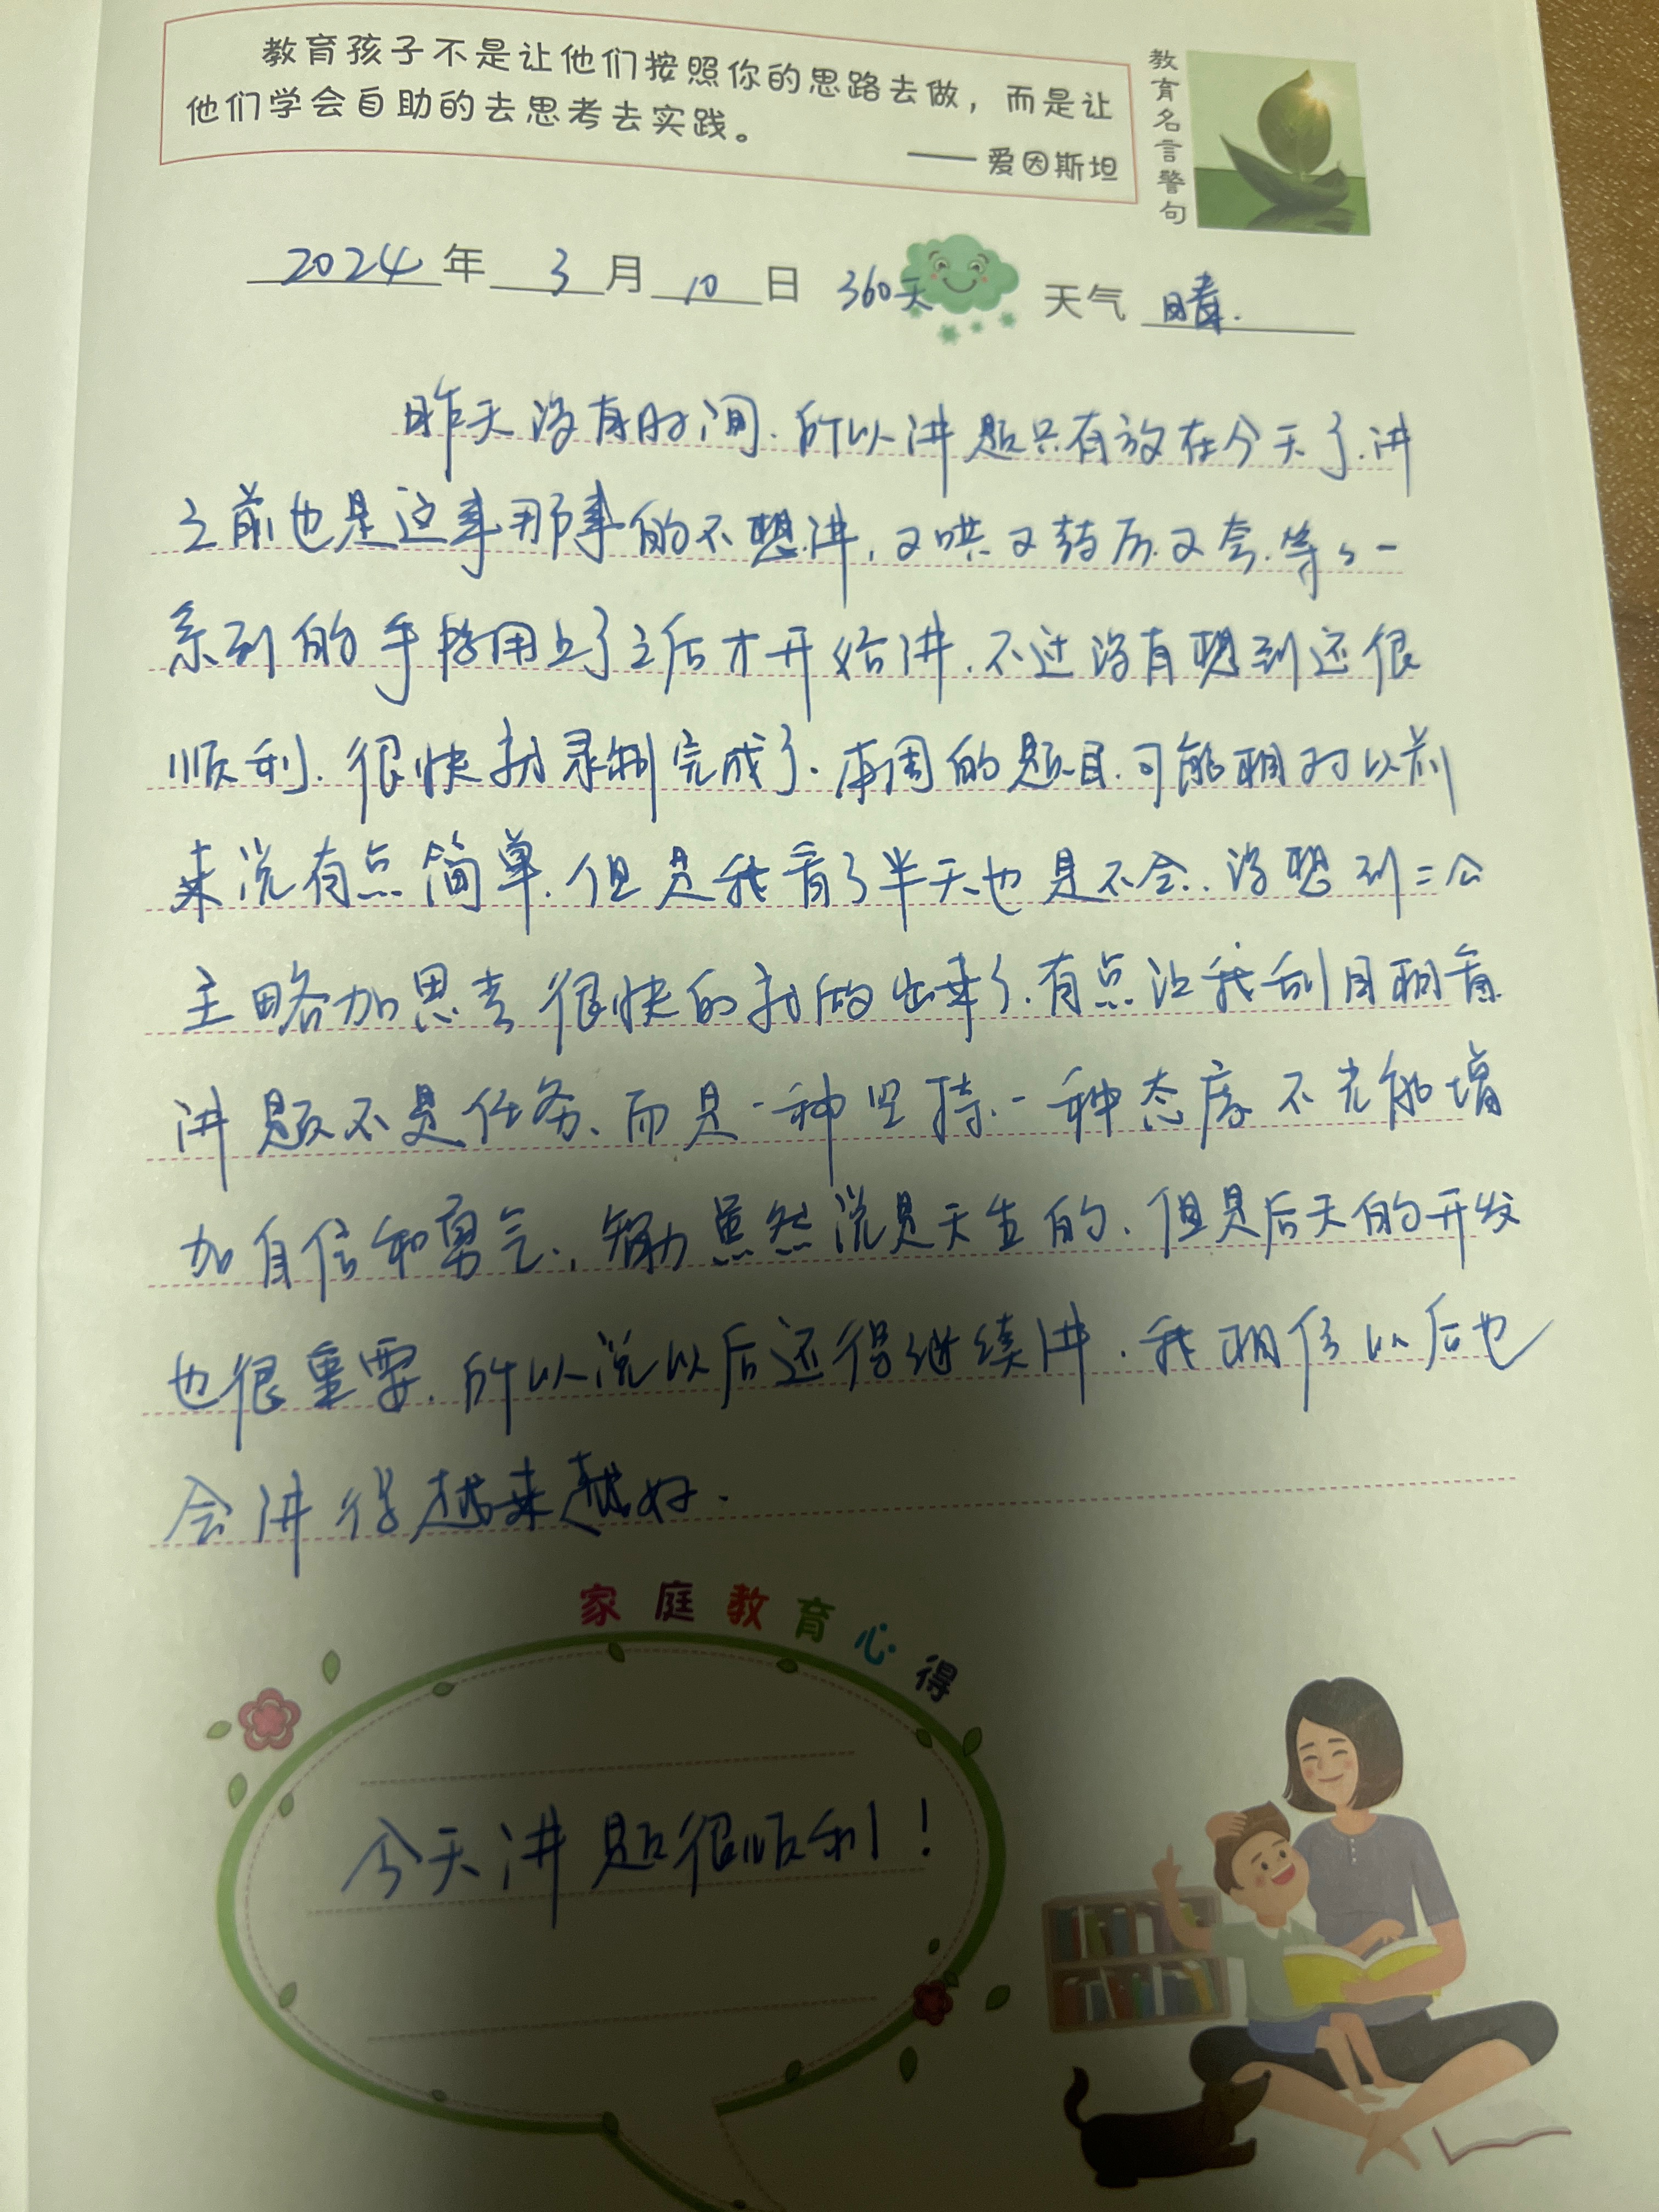 教育孩子不是让他们按照你的思路去做，而是让
他们学会自助的去思考去实践。
—— 爱因斯坦
教育名言警句
2024年 3月 10日 360天 天气 晴.
昨天没有时间.所以讲题只有放在今天了.讲
之前也是这事那事的不想讲.又哄又鼓历.又夸.等等一
系列的手段用上了之后才开始讲.不过没有想到还很
顺利.很快就录制完成了.本周的题目.可能相对以前
来说有点简单.但是我看了半天也是不会..没想到二公
主略加思考很快的就做出来了.有点让我刮目相看
讲题不是任务、而是一种坚持.一种态度不光能增
加自信和勇气.智力虽然说是天生的、但是后天的开发
也很重要.所以说以后还得继续讲.我相信以后也
会讲得越来越好.
家庭教育心得
今天讲题很顺利！